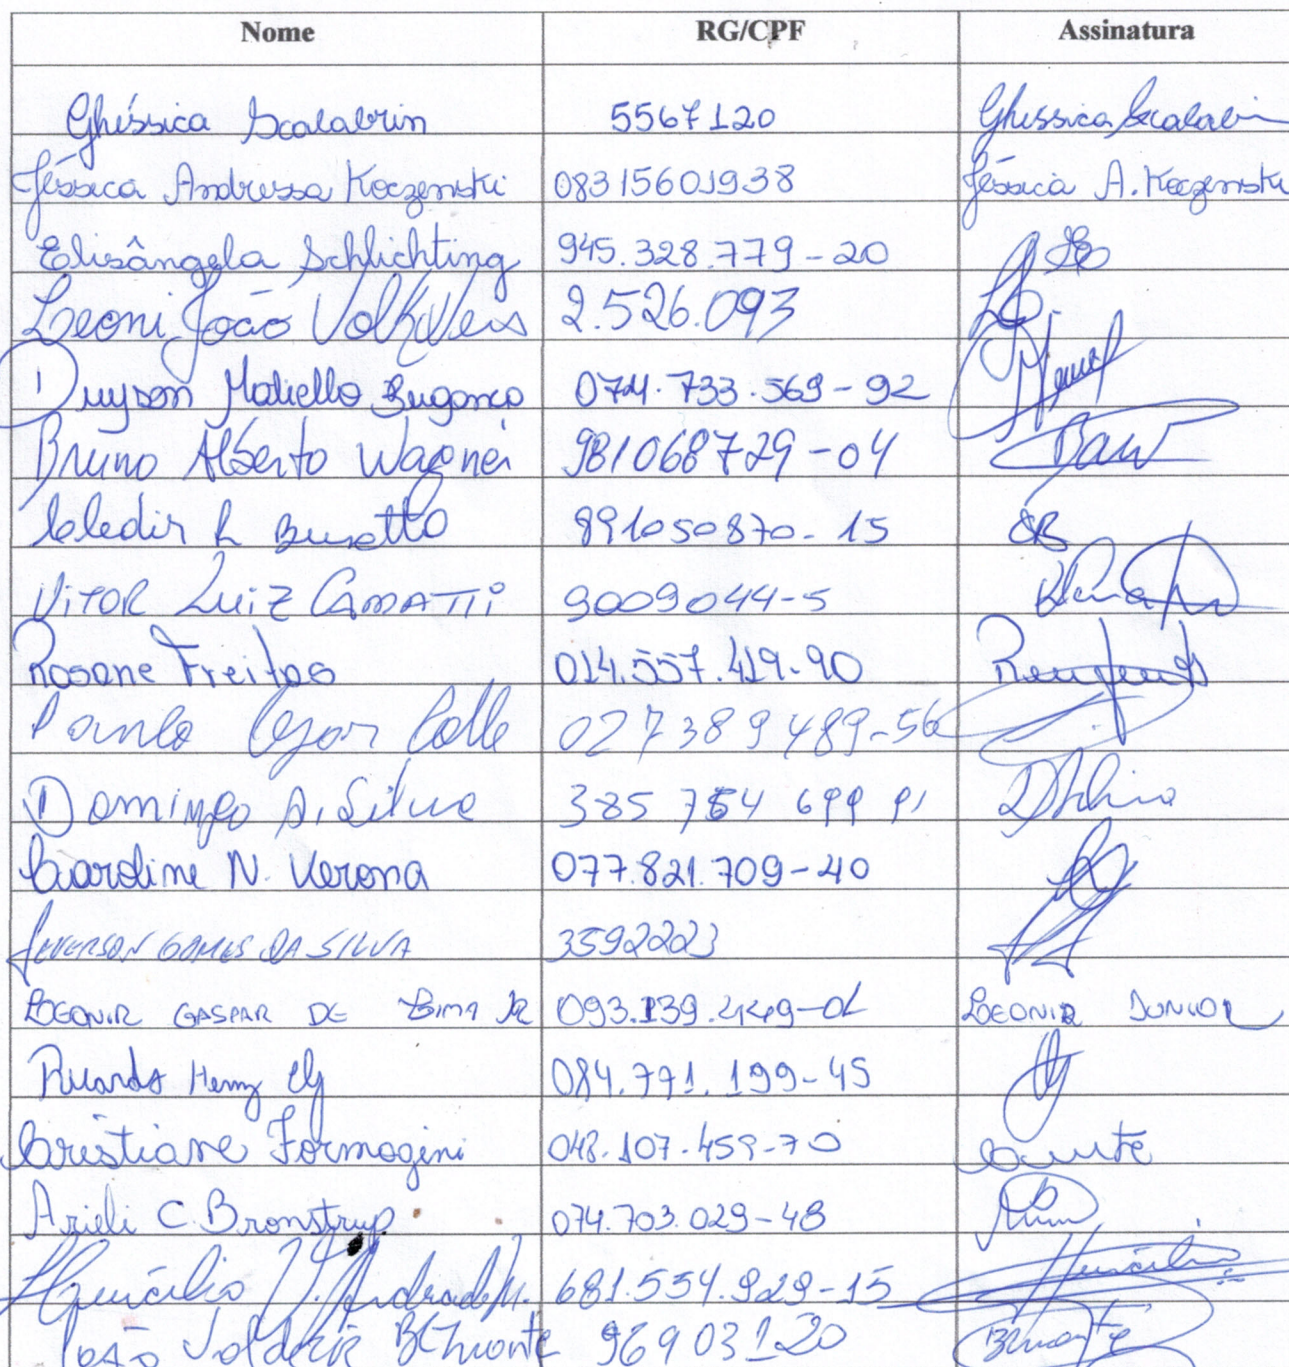 Nome RG/CPF Assinatura
Ghéssica Scalabrin 5567120 Ghessica Scalabrin
Jéssica Andressa Koczenski 08315601938 Jéssica A. Koczenski
Elisângela Schlichting 945.328.779-20
Leoni João Volkweis 2.526.093
Duyson Matiello 074.733.569-92
Bruno Alberto Wagner 981068729-04
Cledir R Busatto 891050870-15 CRB
VITOR LUIZ CAMATTI 9009044-5
Rosane Freitas 014.557.419-90
Paulo Cezar Colle 027389489-56
Domingo A. Silva 385 754 699 91 DASilva
Caroline N. Verona 077.821.709-40
JEVERSON GOMES DA SILVA 3592223
LEONIR GASPAR DE LIMA JR 093.139.449-01 LEONIR JUNIOR
Ricardo Henz 084.791.199-45
Cristiane Formagini 048.107.459-70
Arieli C. Bronstrup 074.703.029-48
Andrade 681.554.929-15
João Valdecir Belmonte 96903120 Belmonte